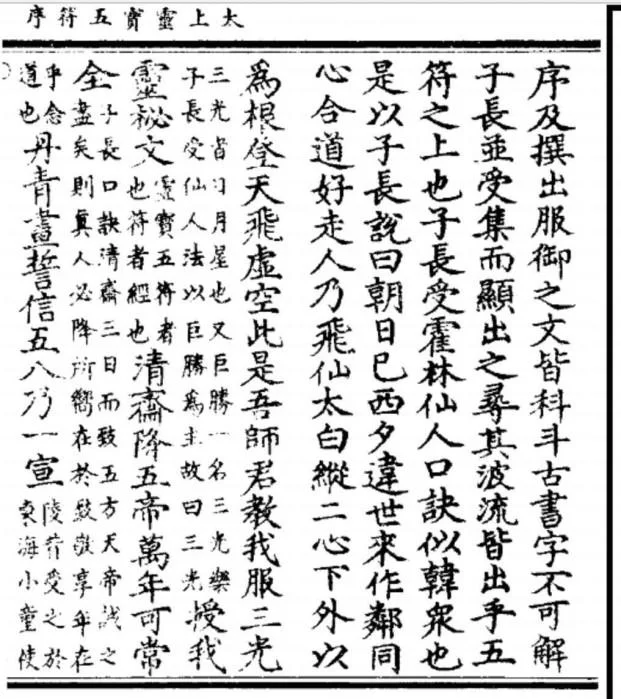 太上靈寶五符序
序及撰出服御之文皆科斗古書字不可解
子長並受集而顯出之尋其波流皆出乎五
符之上也子長受霍林仙人口訣似韓衆也
是以子長說曰朝日已西夕違世來作鄰同
心合道好走人乃飛仙太白縱二心下外以
爲根登天飛虛空此是吾師君教我服三光
三光者日月星也又巨勝一名三光藥
子長受仙人法以巨勝爲主故曰三光授我
靈祕文靈寶五符者
也符者經也清齋降五帝萬年可常
全子長口訣清齋三日而致五方天帝誠之
盡矣則眞人必降所嚮在於享年在
乎念
道也丹青畫誓信五八乃一宣陵昔受之於
東海小童使